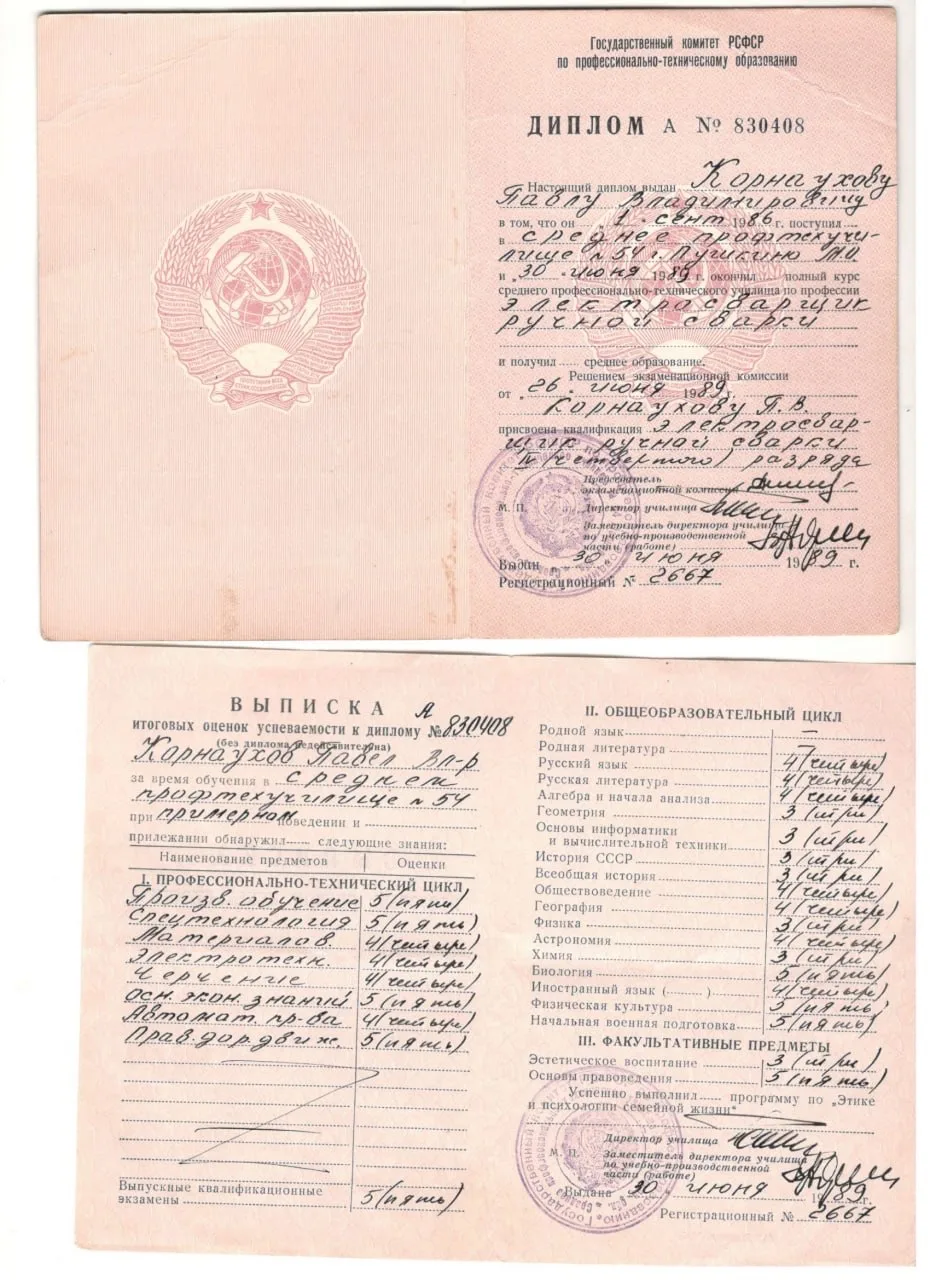 Государственный комитет РСФСР
по профессионально-техническому образованию
ДИПЛОМ А № 830408
Настоящий диплом выдан Корнаухову
Павлу Владимировичу
в том, что он „1„ сент 1986 г. поступил
в среднее профтехучи-
лище № 54 г. Пушкино М.О.
и „30„ июня 1989 г. окончил полный курс
среднего профессионально-технического училища по профессии
электросварщик
ручной сварки
и получил среднее образование.
Решением экзаменационной комиссии
от „26„ июня 1989 г.
Корнаухову П. В.
присвоена квалификация электросвар-
щик ручной сварки
IV (четвертого) разряда
Председатель
экзаменационной комиссии
М. П. Директор училища
Заместитель директора училища
по учебно-производственной
части (работе)
Выдан 30 июня 1989 г.
Регистрационный № 2667
ВЫПИСКА
итоговых оценок успеваемости к диплому № А 830408
(без диплома недействительна)
Корнаухов Павел Вл-р
за время обучения в среднем
профтехучилище № 54
при примерном поведении и
прилежании обнаружил следующие знания:
Наименование предметов Оценки
I. ПРОФЕССИОНАЛЬНО-ТЕХНИЧЕСКИЙ ЦИКЛ
Произв. обучение 5 (пять)
Спецтехнология 5 (пять)
Материалов. 4 (четыре)
Электротехн. 4 (четыре)
Черчение 4 (четыре)
осн. экон. знаний 5 (пять)
Автомат. пр-ва 4 (четыре)
Прав. дор. движ. 5 (пять)
Выпускные квалификационные
экзамены 5 (пять)
II. ОБЩЕОБРАЗОВАТЕЛЬНЫЙ ЦИКЛ
Родной язык —
Родная литература —
Русский язык 4 (четыре)
Русская литература 4 (четыре)
Алгебра и начала анализа 4 (четыре)
Геометрия 3 (три)
Основы информатики
и вычислительной техники 3 (три)
История СССР 3 (три)
Всеобщая история 3 (три)
Обществоведение 4 (четыре)
География 4 (четыре)
Физика 3 (три)
Астрономия 4 (четыре)
Химия 3 (три)
Биология 5 (пять)
Иностранный язык ( ) 4 (четыре)
Физическая культура 5 (пять)
Начальная военная подготовка 5 (пять)
III. ФАКУЛЬТАТИВНЫЕ ПРЕДМЕТЫ
Эстетическое воспитание 3 (три)
Основы правоведения 5 (пять)
Успешно выполнил программу по „Этике
и психологии семейной жизни“
Директор училища
М. П. Заместитель директора училища
по учебно-производственной
части (работе)
Выдана 30 июня 1989 г.
Регистрационный № 2667